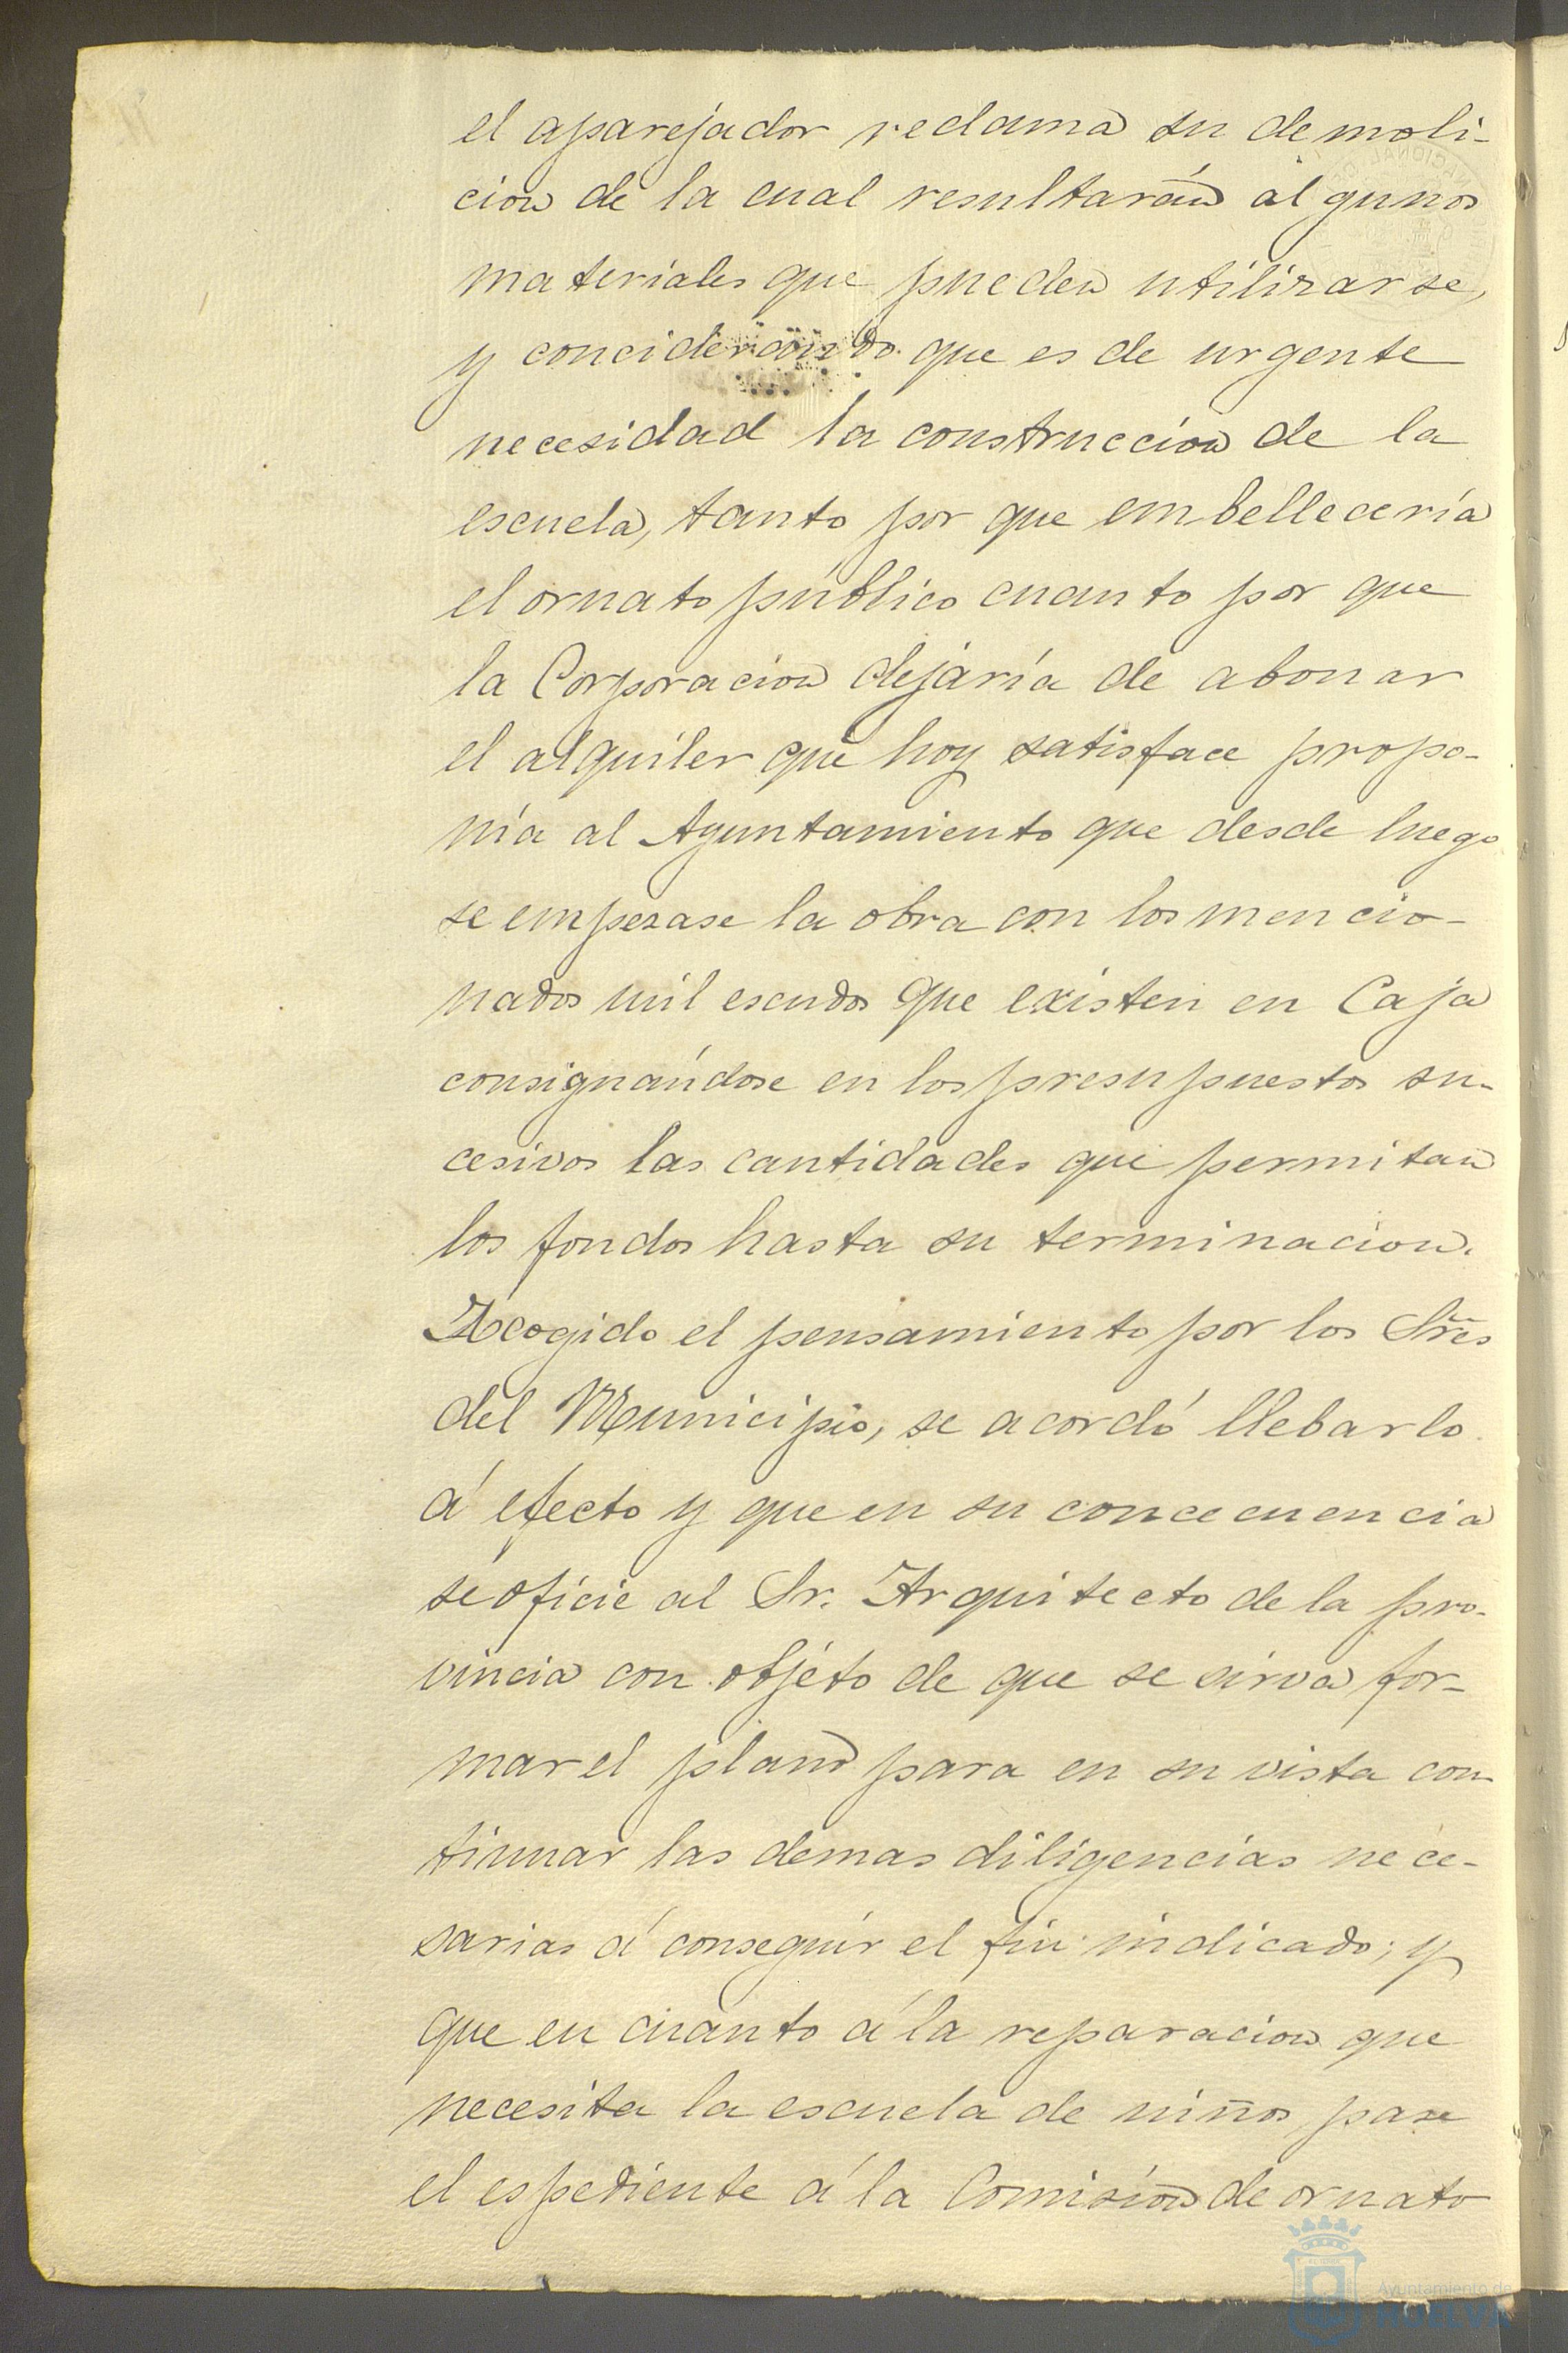 el aparejador reclama su demoli-
cion de la cual resultarán algunos
materiales que pueden utilizarse,
y conciderando que es de urgente
necesidad la construccion de la
escuela, tanto por que embellecería
el ornato público cuanto por que
la Corporacion dejaría de abonar
el alquiler que hoy satisface propo-
nia al Ayuntamiento que desde luego
se empezase la obra con los mencio-
nados mil escudos que existen en Caja
consignándose en los presupuestos su-
cesivos las cantidades que permitan
los fondos hasta su terminacion.
Acogido el pensamiento por los Sres
del Municipio, se acordó llebarlo
á efecto y que en su concecuencia
se oficie al Sr. Arquitecto de la pro-
vincia con objeto de que se sirva for-
mar el plano para en su vista con-
tinuar las demas diligencias nece-
sarias á conseguir el fin indicado; y
que en cuanto á la reparacion que
necesita la escuela de niños, pase
el espediente á la Comisión de ornato
Ayuntamiento de
HUELVA